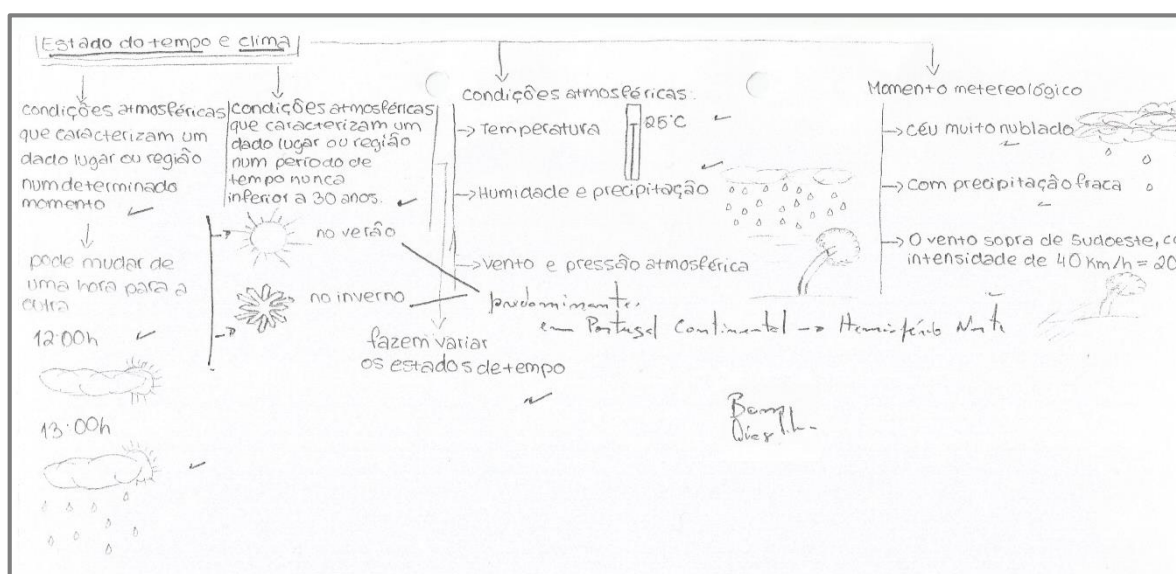 Estado do tempo e clima
condições atmosféricas
que caracterizam um
dado lugar ou região
num determinado
momento
pode mudar de
uma hora para a
outra
12:00h
13:00h
condições atmosféricas
que caracterizam um
dado lugar ou região
num período de
tempo nunca
inferior a 30 anos.
no verão
no inverno
predominante.
em Portugal Continental → Hemisfério Norte
condições atmosféricas:
→ Temperatura
25°C
→ Humidade e precipitação
→ Vento e pressão atmosférica
fazem variar
os estados de tempo
Momento metereológico
→ céu muito nublado
→ com precipitação fraca
→ O vento sopra de Sudoeste, co
intensidade de 40 Km/h = 20
Bom